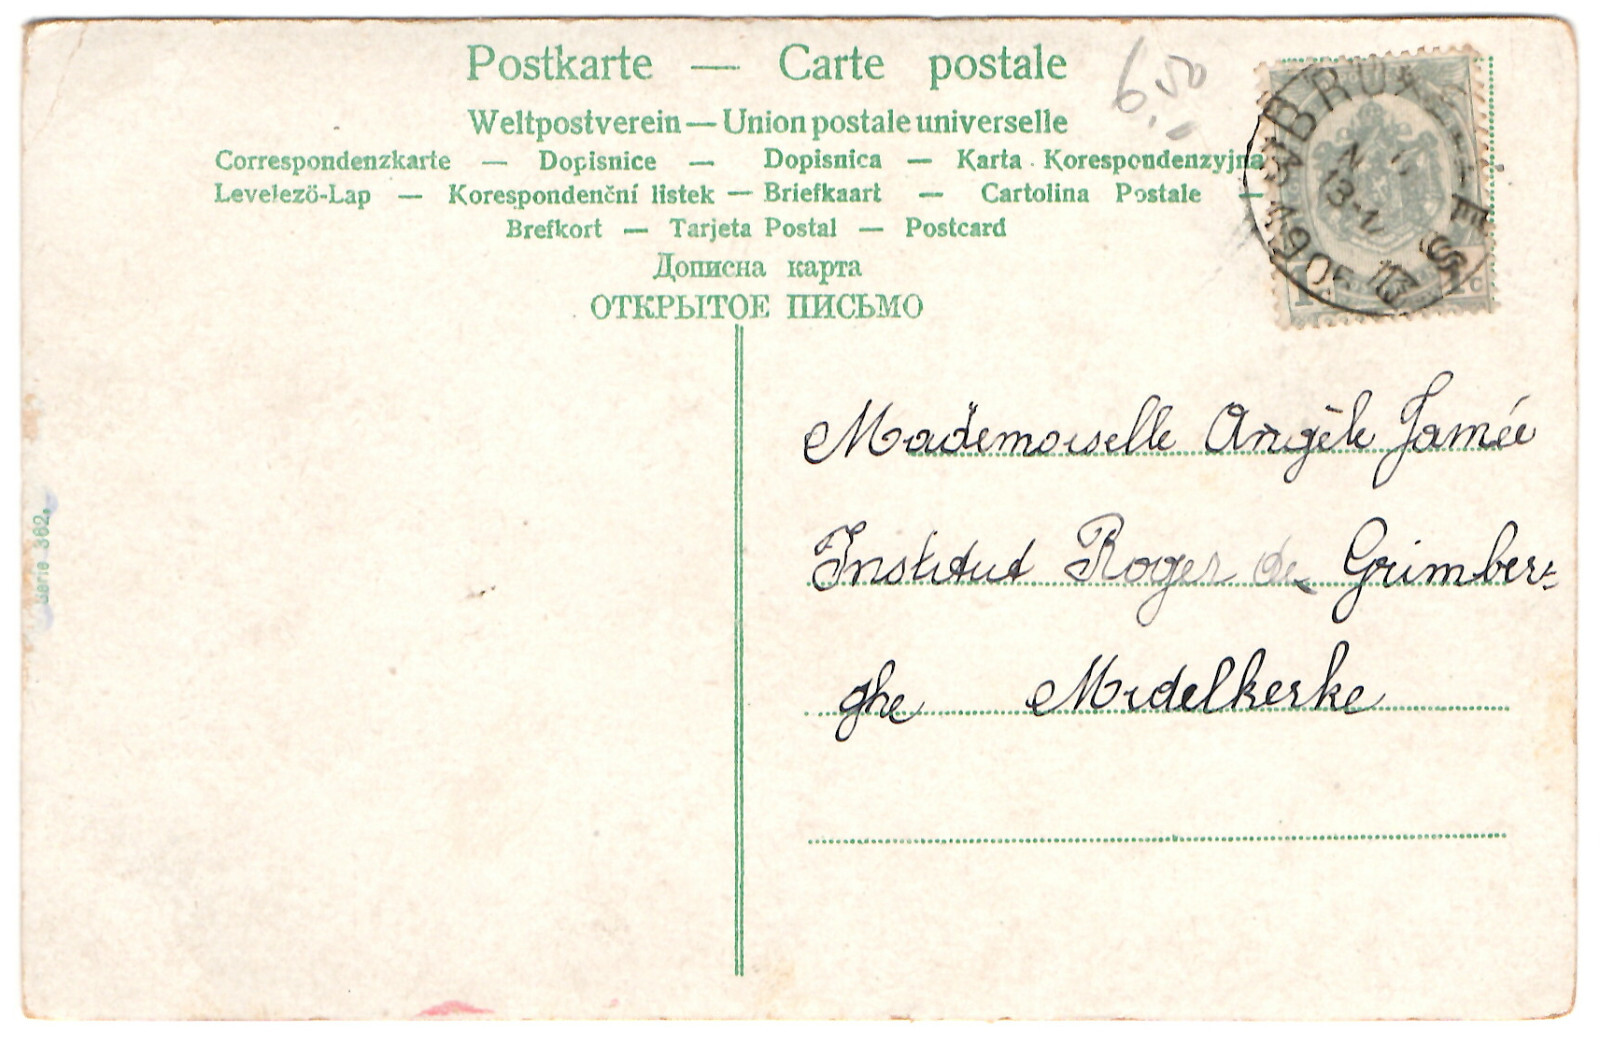 Postkarte — Carte postale
6,50
Weltpostverein — Union postale universelle
Correspondenzkarte — Dopisnice — Dopisnica — Karta Korespondenzyjna
Levelező-Lap — Korespondenční listek — Briefkaart — Cartolina Postale —
Brefkort — Tarjeta Postal — Postcard
Дописна карта
ОТКРЫТОЕ ПИСЬМО
BRUXELLES
1c
Mademoiselle Angèle Jamée
Institut Roger de Grimber=
ghe Midelkerke
Serie 362.